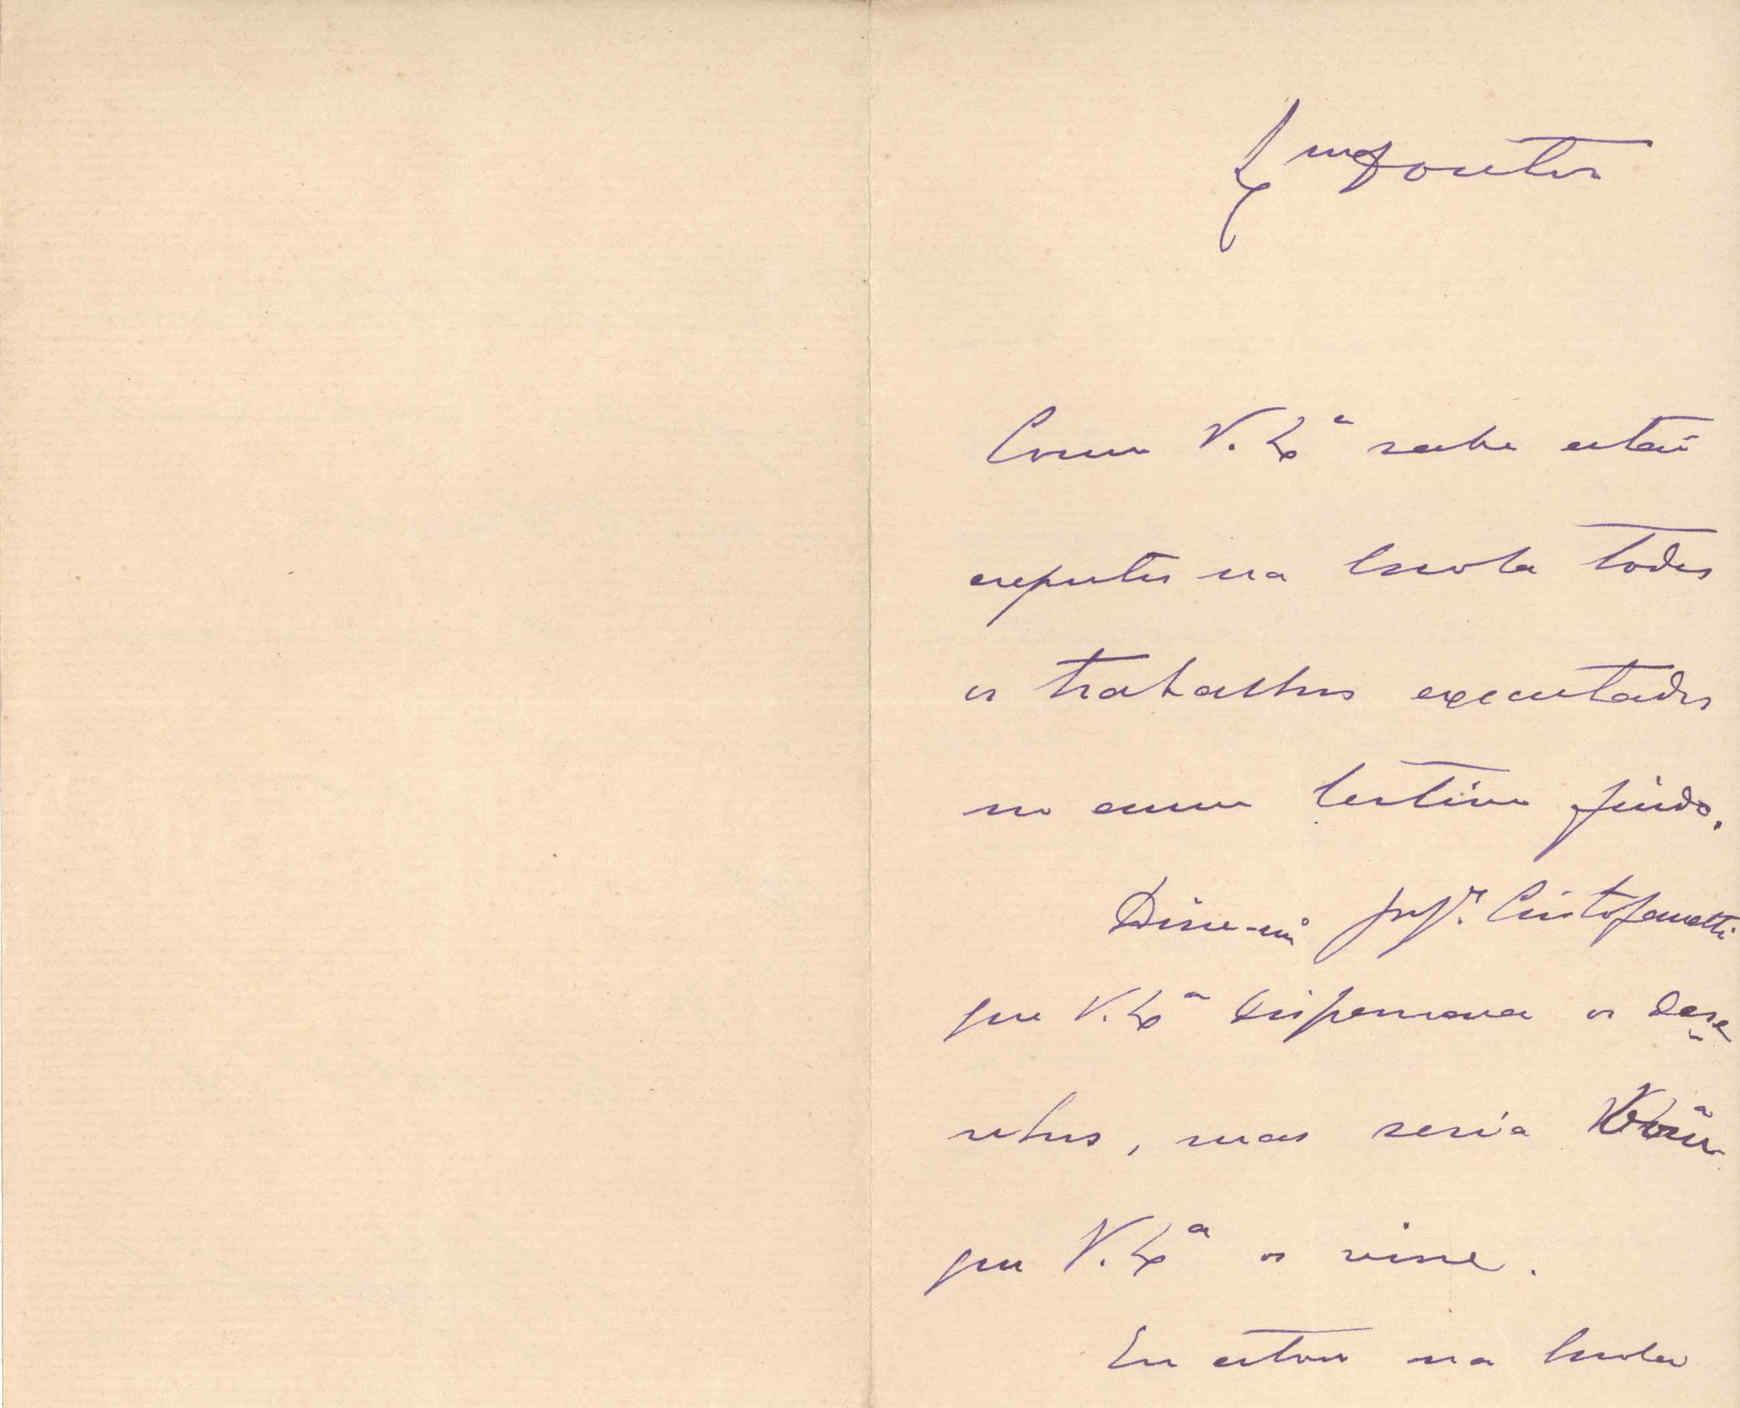 Exmo Fontes
Como V. Exa sabe estão
expostos na Escola todos
os trabalhos executados
no anno lectivo findo.
Disse-me prof.r Cristofanetti
que V. Exa dispensava os dese
nhos, mas seria bom
que V. Exa os visse.
Eu estou na Escola